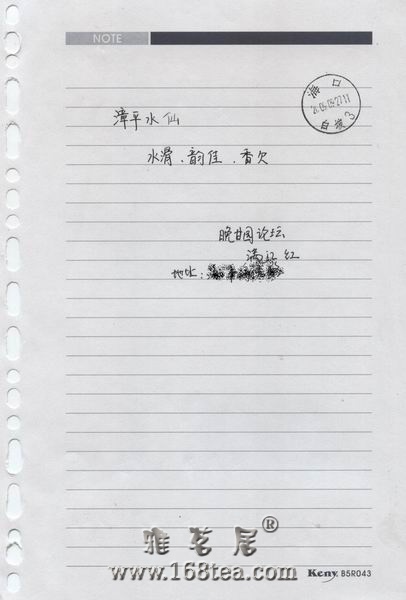 NOTE
海口
白坡 3
漳平水仙
水滑、韵佳、香欠
晚甘园论坛
满江红
地址:
雅茗居®
www.168tea.com
Keny B5R043